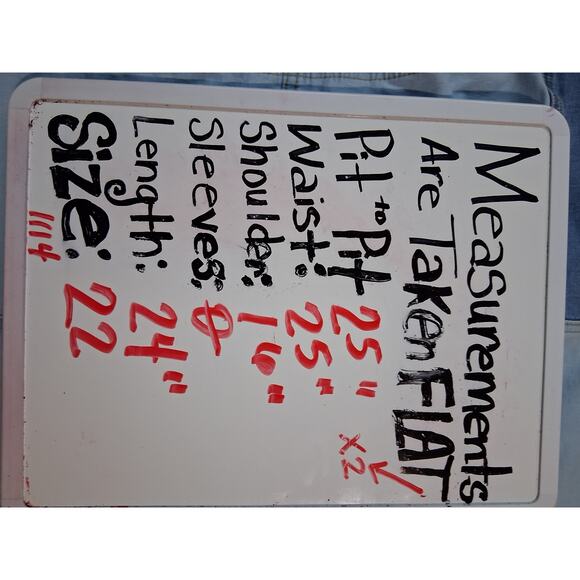 Measurements
Are Taken FLAT
x2
Pit to Pit 25"
Waist: 25"
Shoulder: 16"
Sleeves: 0
Length: 24"
Size: 22
1114